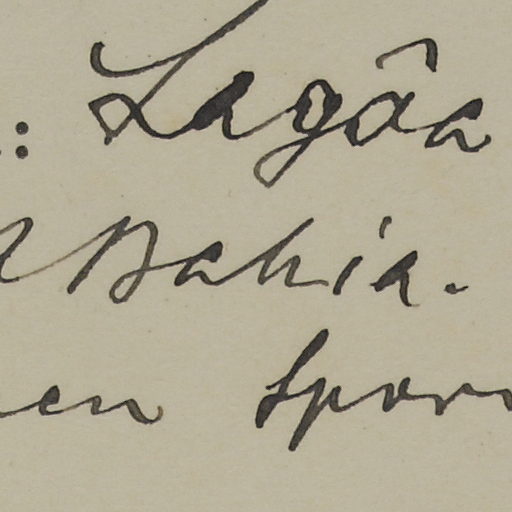 : Lagôa
Bahia.
en Spor